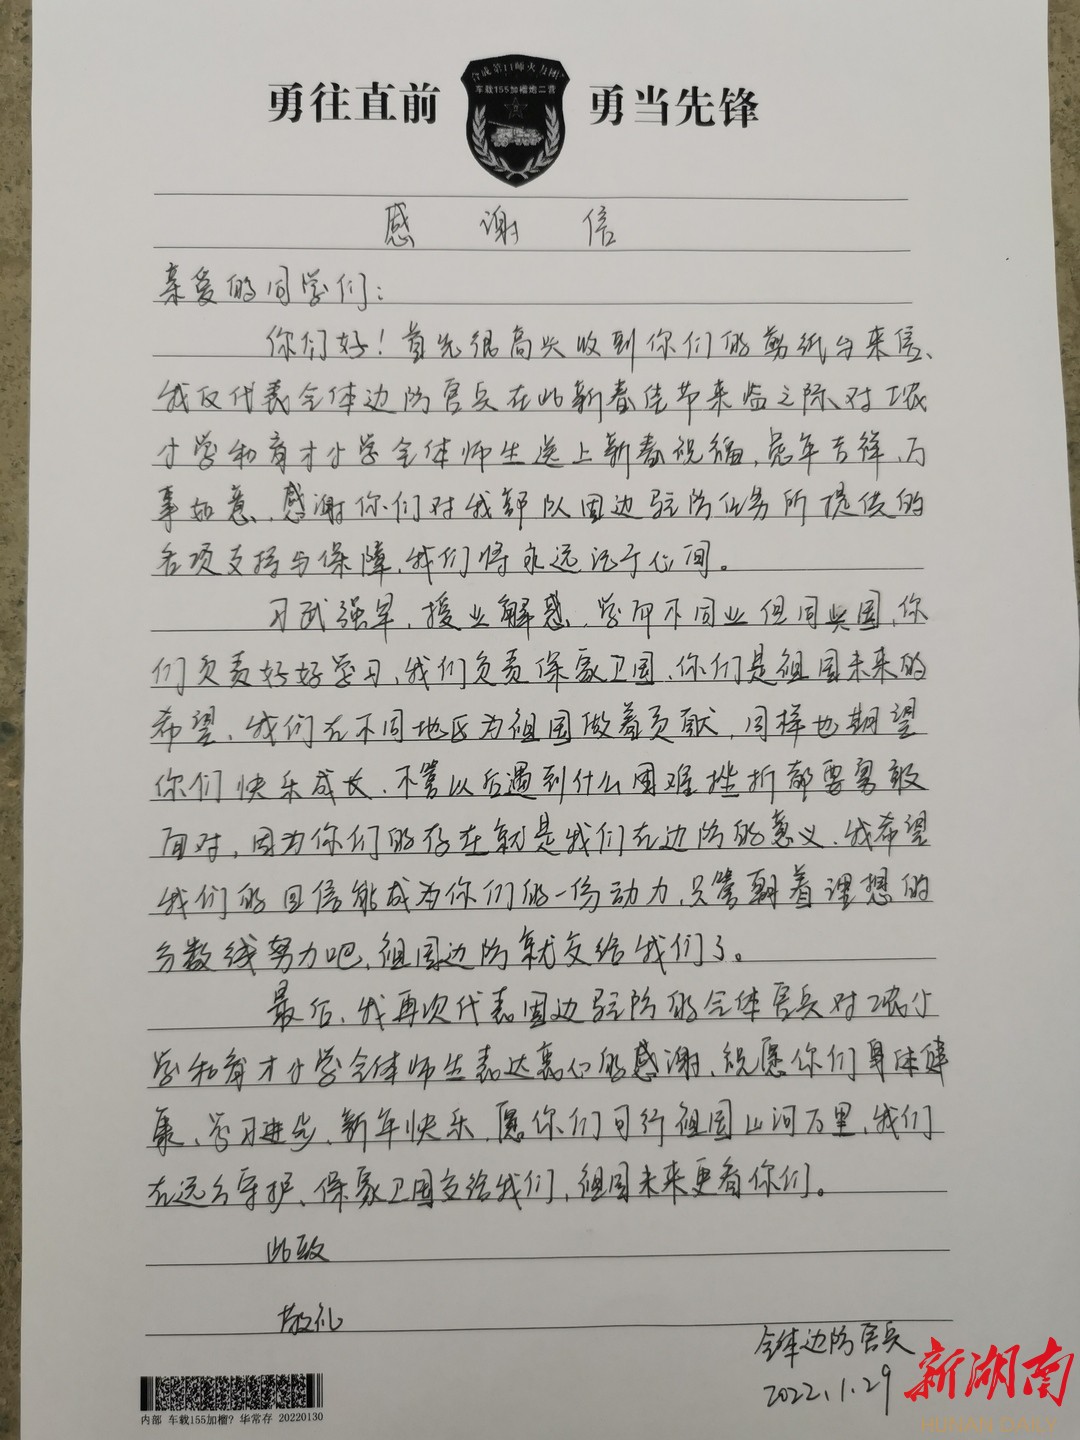 勇往直前 勇当先锋
合成第11师火力团
车载155加榴炮二营
感 谢 信
亲爱的同学们：
你们好！首先很高兴收到你们的剪纸与来信、
我仅代表全体边防官兵在此新春佳节来临之际、对工农
小学和育才小学全体师生送上新春祝福，兔年吉祥、万
事如意、感谢你们对我部队固边驻防任务所提供的
各项支持与保障、我们将永远记于心间。
习武强军，授业解惑、学研不同业但同兴国、你
们负责好好学习、我们负责保家卫国、你们是祖国未来的
希望、我们在不同地区为祖国做着贡献，同样也期望
你们快乐成长、不管以后遇到什么困难挫折都要勇敢
面对，因为你们的存在就是我们在边防的意义、我希望
我们的回信能成为你们的一份动力、只管朝着理想的
分数线努力吧、祖国边防就交给我们了。
最后、我再次代表固边驻防的全体官兵对工农小
学和育才小学全体师生表达衷心的感谢、祝愿你们身体健
康、学习进步、新年快乐、愿你们可行祖国山河万里、我们
在远方守护、保家卫国交给我们，祖国未来更看你们。
此致
敬礼
全体边防官兵
2022.1.29
内部 车载155加榴? 华常存 20220130
新湖南
HUNAN DAILY